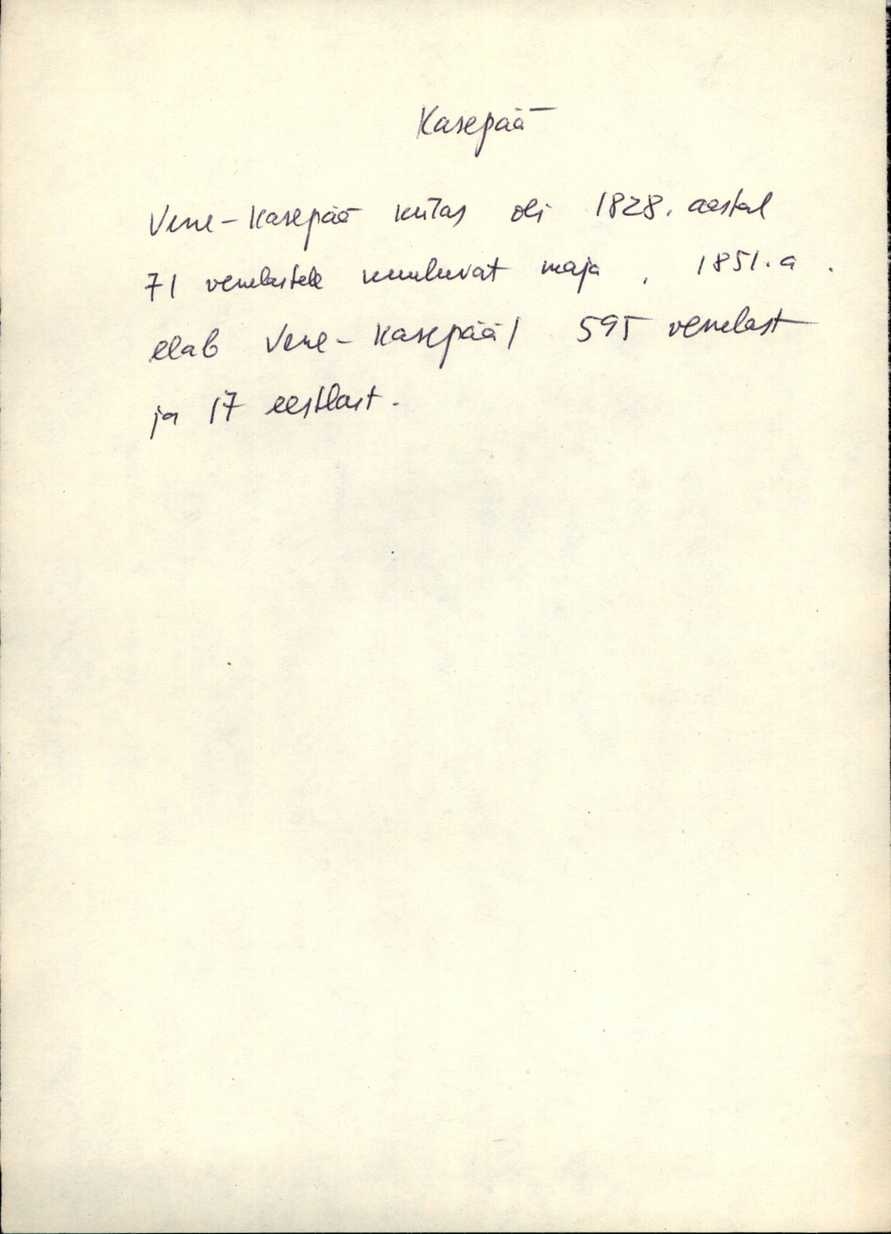 Kasepää
Vene-Kasepää külas oli 1828. aastal
71 venelastele kuuluvat maja. 1851.a.
elab Vene-Kasepääl 595 venelast
ja 17 eestlast.